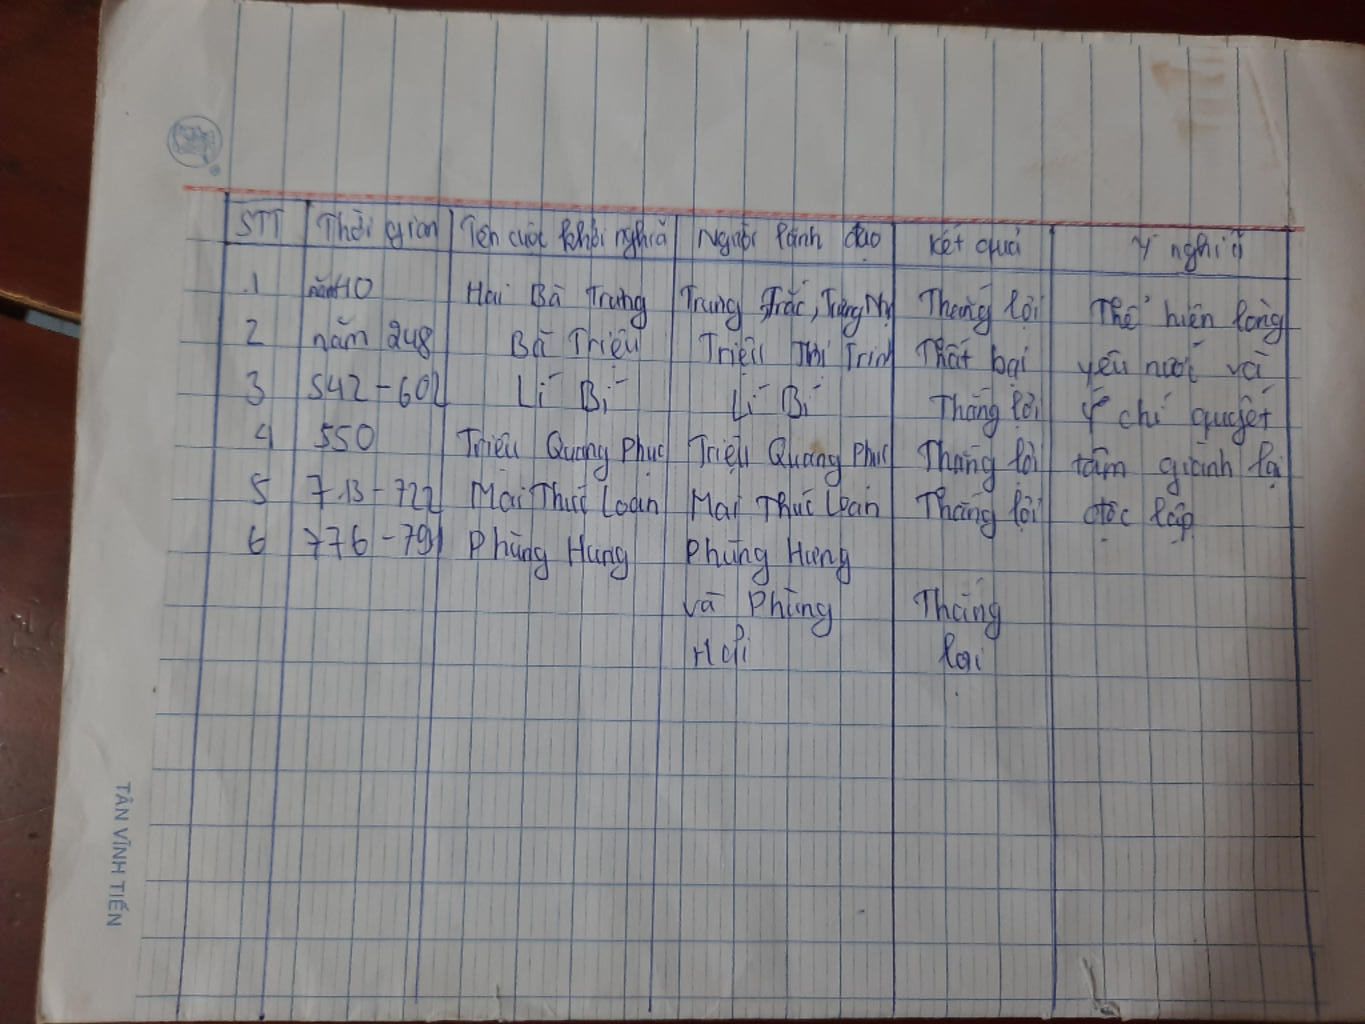 STT Thời gian Tên cuộc khởi nghĩa Người lãnh đạo Kết quả Ý nghĩa
1 năm 40 Hai Bà Trưng Trưng Trắc, Trưng Nhị Thắng lợi Thể hiện lòng
2 năm 248 Bà Triệu Triệu Thị Trinh Thất bại yêu nước và
3 542-602 Lí Bí Lí Bí Thắng lợi ý chí quyết
4 550 Triệu Quang Phục Triệu Quang Phục Thắng lợi tâm giành lại
5 713-722 Mai Thúc Loan Mai Thúc Loan Thắng lợi độc lập
6 776-791 Phùng Hưng Phùng Hưng
và Phùng Thắng
Hải lợi
TÂN VĨNH TIẾN